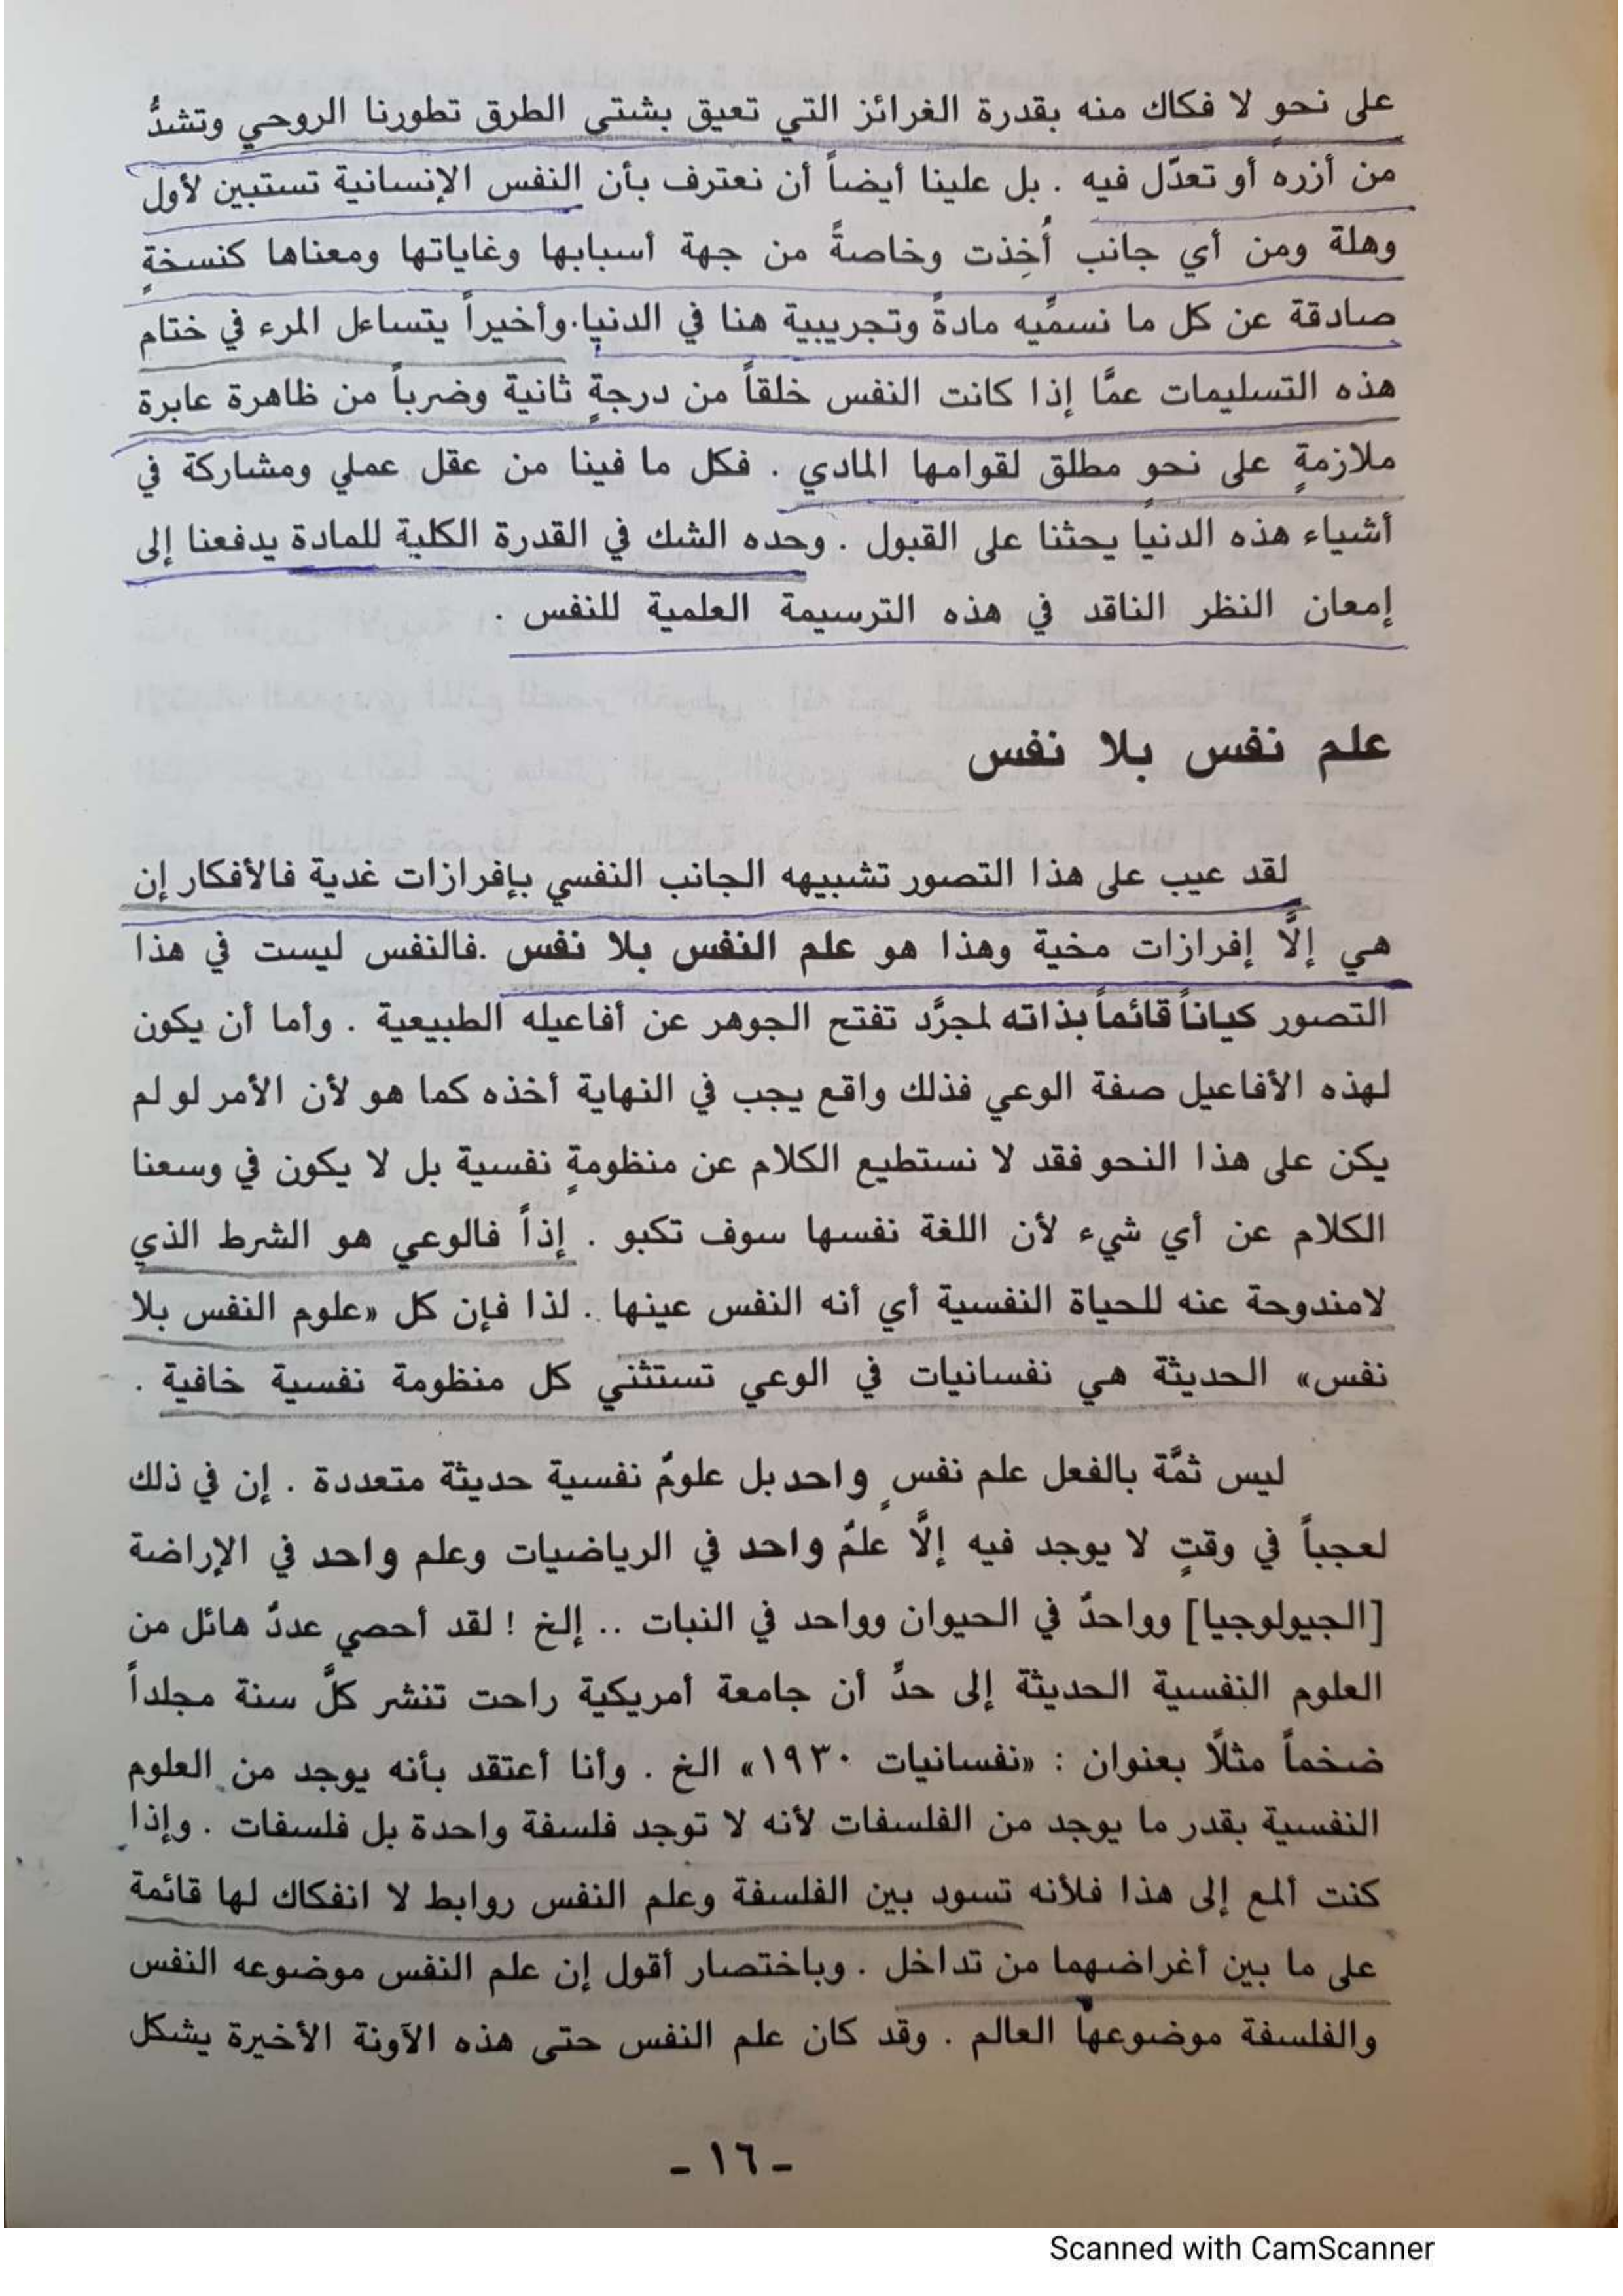 على نحوٍ لا فكاك منه بقدرة الغرائز التي تعيق بشتى الطرق تطورنا الروحي وتشدُّ
من أزره أو تعدّل فيه . بل علينا أيضاً أن نعترف بأن النفس الإنسانية تستبين لأول
وهلة ومن أي جانب أُخِذت وخاصةً من جهة أسبابها وغاياتها ومعناها كنسخةٍ
صادقة عن كل ما نسمِّيه مادةً وتجريبية هنا في الدنيا. وأخيراً يتساءل المرء في ختام
هذه التسليمات عمَّا إذا كانت النفس خلقاً من درجةٍ ثانية وضرباً من ظاهرة عابرة
ملازمةٍ على نحو مطلق لقوامها المادي . فكل ما فينا من عقل عملي ومشاركة في
أشياء هذه الدنيا يحثنا على القبول . وحده الشك في القدرة الكلية للمادة يدفعنا إلى
إمعان النظر الناقد في هذه الترسيمة العلمية للنفس .
علم نفس بلا نفس
لقد عيب على هذا التصور تشبيهه الجانب النفسي بإفرازات غدية فالأفكار إن
هي إلَّا إفرازات مخية وهذا هو علم النفس بلا نفس .فالنفس ليست في هذا
التصور كياناً قائماً بذاته لمجرَّد تفتح الجوهر عن أفاعيله الطبيعية . وأما أن يكون
لهذه الأفاعيل صفة الوعي فذلك واقع يجب في النهاية أخذه كما هو لأن الأمر لو لم
يكن على هذا النحو فقد لا نستطيع الكلام عن منظومةٍ نفسية بل لا يكون في وسعنا
الكلام عن أي شيء لأن اللغة نفسها سوف تكبو . إذاً فالوعي هو الشرط الذي
لامندوحة عنه للحياة النفسية أي أنه النفس عينها . لذا فإن كل «علوم النفس بلا
نفس» الحديثة هي نفسانيات في الوعي تستثني كل منظومة نفسية خافية .
ليس ثمَّة بالفعل علم نفسٍ واحد بل علومٌ نفسية حديثة متعددة . إن في ذلك
لعجباً في وقتٍ لا يوجد فيه إلَّا علمٌ واحد في الرياضيات وعلم واحد في الإراضة
[الجيولوجيا] وواحدٌ في الحيوان وواحد في النبات .. إلخ ! لقد أحصي عددٌ هائل من
العلوم النفسية الحديثة إلى حدِّ أن جامعة أمريكية راحت تنشر كلَّ سنة مجلداً
ضخماً مثلًا بعنوان : «نفسانيات ١٩٣٠» الخ . وأنا أعتقد بأنه يوجد من العلوم
النفسية بقدر ما يوجد من الفلسفات لأنه لا توجد فلسفة واحدة بل فلسفات . وإذا
كنت ألمع إلى هذا فلأنه تسود بين الفلسفة وعلم النفس روابط لا انفكاك لها قائمة
على ما بين أغراضهما من تداخل . وباختصار أقول إن علم النفس موضوعه النفس
والفلسفة موضوعها العالم . وقد كان علم النفس حتى هذه الآونة الأخيرة يشكل
- ١٦ -
Scanned with CamScanner